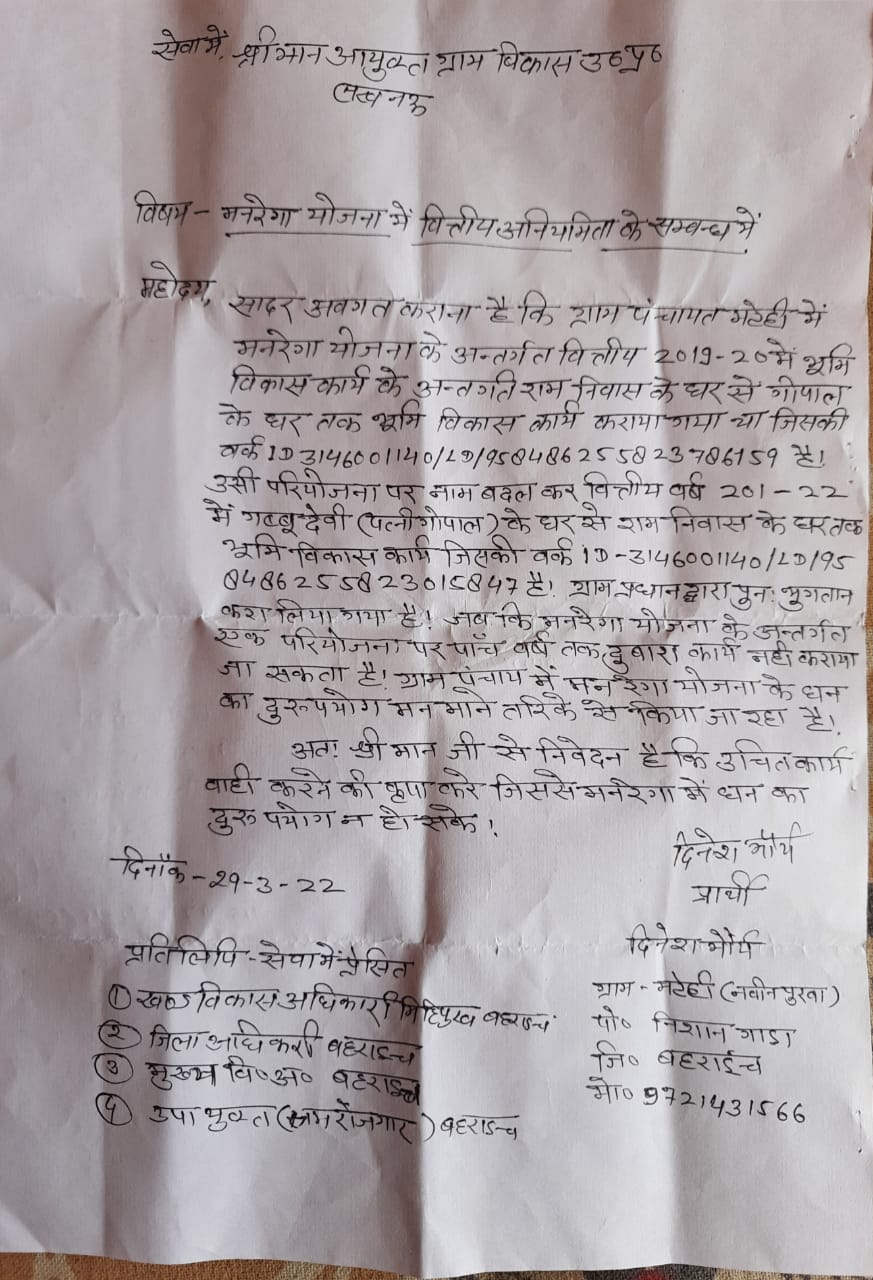 सेवा में, श्रीमान आयुक्त ग्राम विकास उ०प्र०
लखनऊ
विषय - मनरेगा योजना में वित्तीय अनियमिता के सम्बन्ध में
महोदय,
सादर अवगत कराना है कि ग्राम पंचायत मटेही में
मनरेगा योजना के अन्तर्गत वित्तीय 2019-20 में भूमि
विकास कार्य के अन्तर्गत राम निवास के घर से गोपाल
के घर तक भूमि विकास कार्य कराया गया था जिसकी
वर्क ID 3146001140/LD/958486255823786159 है!
उसी परियोजना पर नाम बदल कर वित्तीय वर्ष 201-22
में गब्बू देवी (पत्नी गोपाल) के घर से राम निवास के घर तक
भूमि विकास कार्य जिसकी वर्क ID-3146001140/LD/95
8486255823015847 है! ग्राम प्रधान द्वारा पुनः भुगतान
करा लिया गया है! जब कि मनरेगा योजना के अन्तर्गत
एक परियोजना पर पाँच वर्ष तक दुबारा कार्य नही कराया
जा सकता है! ग्राम पंचाय में मनरेगा योजना के धन
का दुरुपयोग मन माने तरिके से किया जा रहा है!
अतः श्री मान जी से निवेदन है कि उचित कार्य
वाही करने की कृपा करे जिससे मनरेगा में धन का
दुरुपयोग न हो सके!
दिनाँक - 29-3-22
दिनेश मौर्य
प्रार्थी
दिनेश मौर्य
ग्राम - मटेही (नवीन पुरवा)
पो० निशान गाडा
जि० बहराईच
मो० 9721431566
प्रतिलिपि - सेवा में प्रेसित
① खण्ड विकास अधिकारी बहराइच
② जिला अधिकरी बहराइच
③ मुख्य वि०अ० बहराइच
④ उपायुक्त (श्रम रोजगार) बहराइच